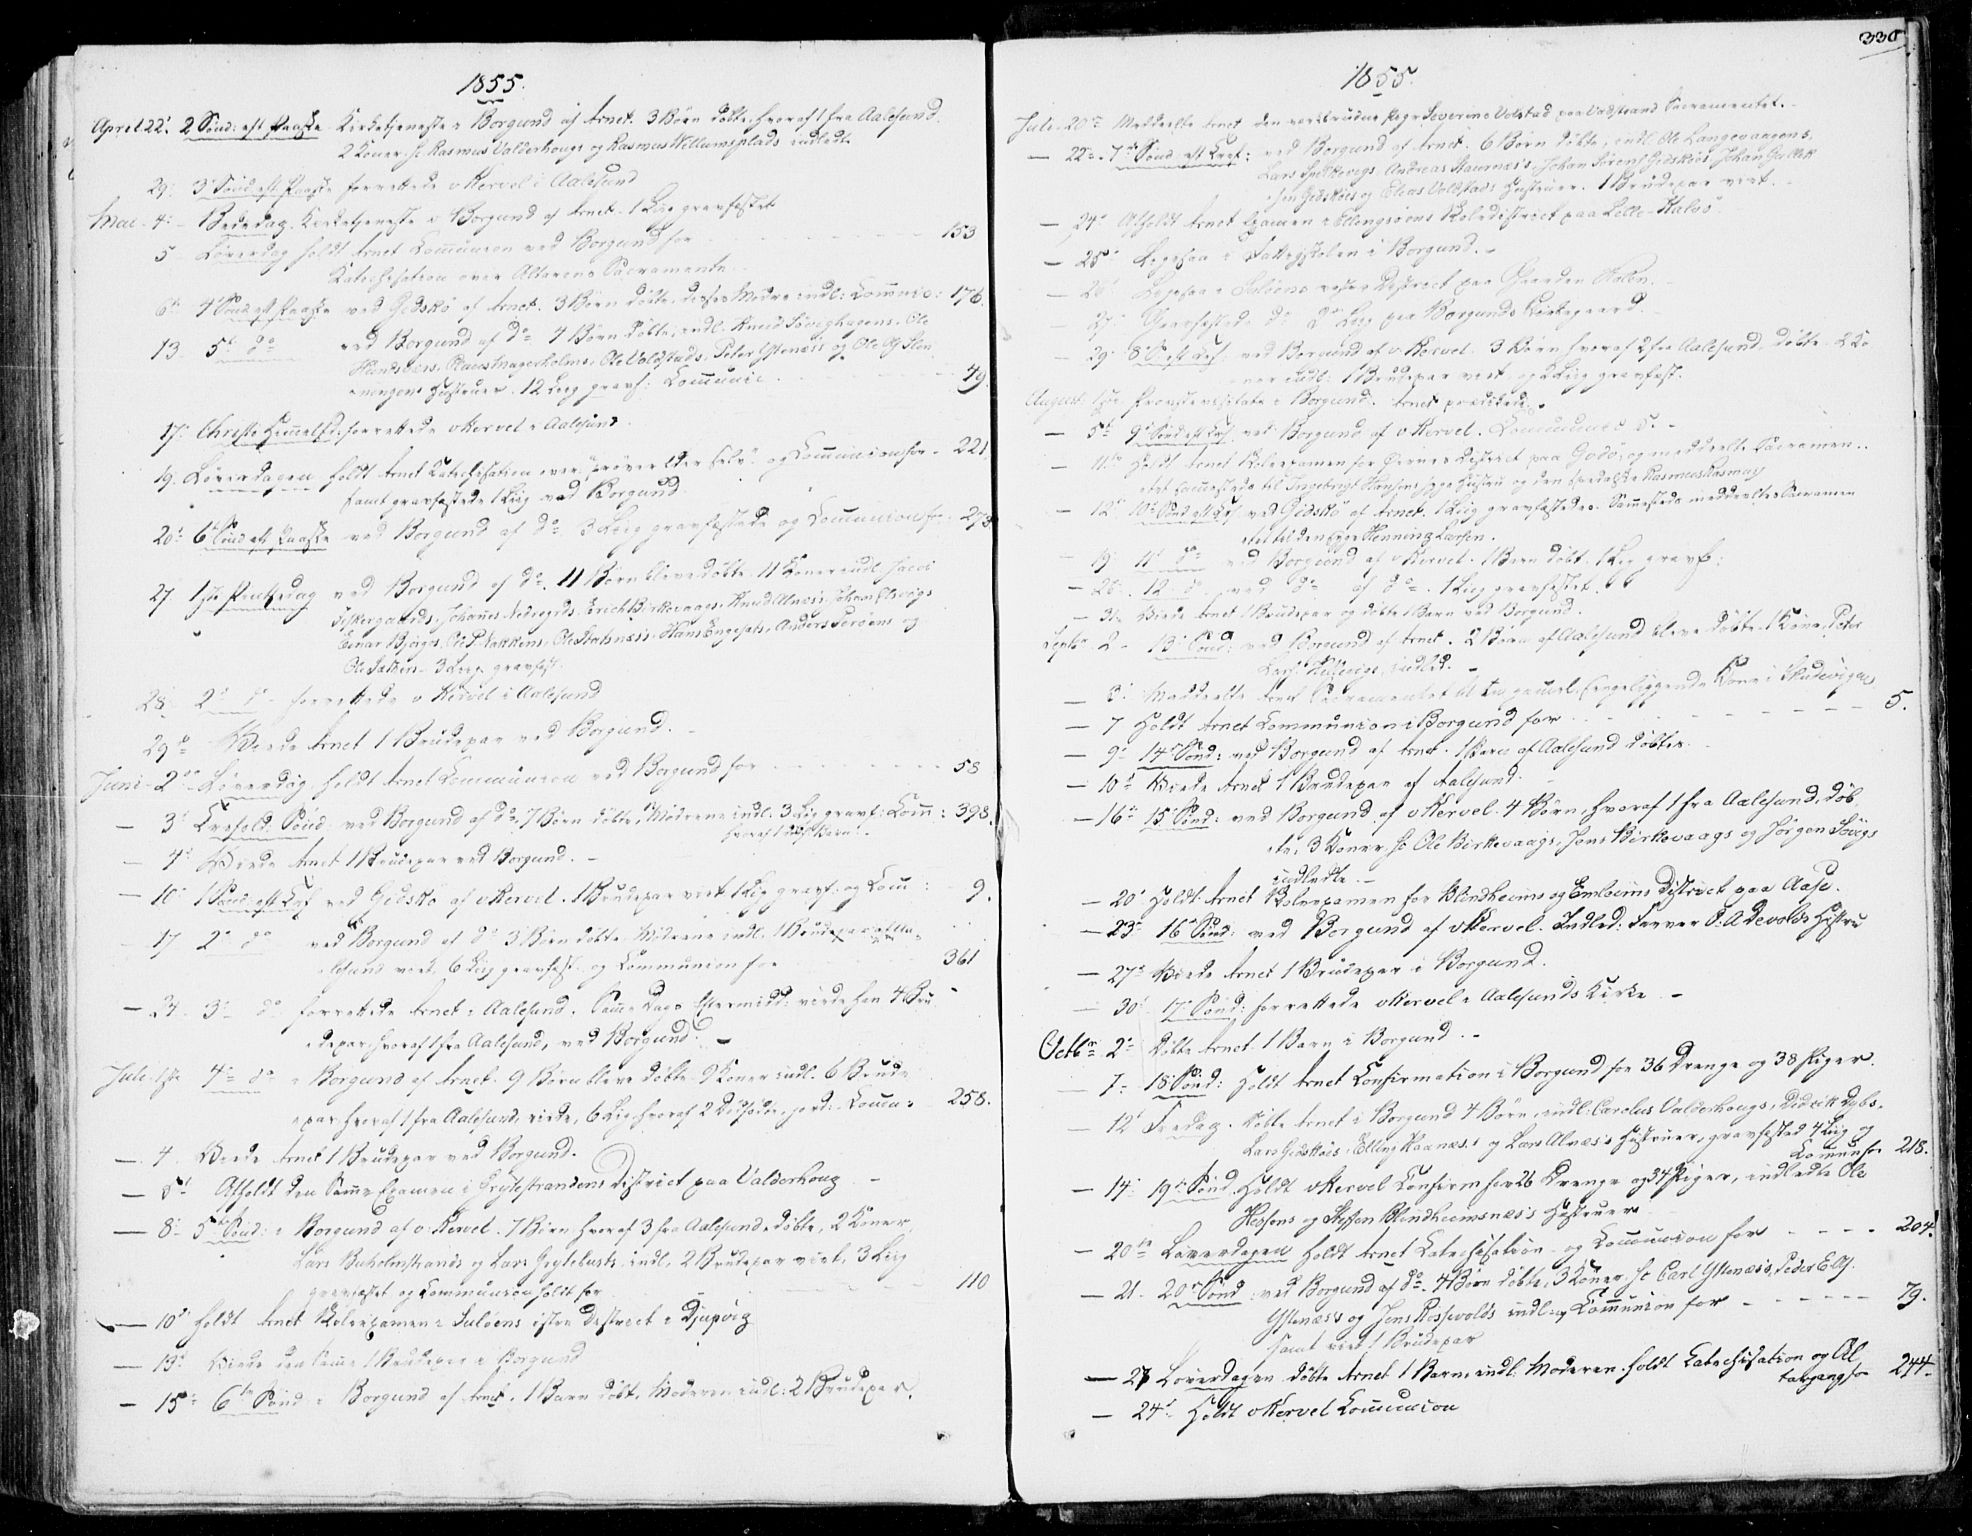 1855.
April 22. 2 Sønd: eft Paaske Kirketjeneste i Borgund af Arnet. 3 Børn døbte, hvoraf 1 fra Aalesund.
2 Koner, sc Rasmus Valderhougs og Rasmus Willumsplads indledt.
29. 3 Sønd eft Paaske forrettede v Kervel i Aalesund
Mai 4. Bededag. Kirketjeneste i Borgund af Arnet. 1 Liig gravfæstet
5 Løverdag holdt Arnet Communion ved Borgund for 153
Katechisation over Altarens Sacramente.
6. 4 Sønd eft Paaske ved Gidskø af Arnet. 3 Børn døbte, disses Mødre indl: Communic: 176.
13. 5t do ved Borgund af do 4 Børn døbte, indl. Knud Søvighagens, Ole
Ole Volstads, Peter Ystenæss og Ole
Hustruer. 12 Liig gravf: Communic. 49.
17. Christi Himmelfd. forrettede v Kervel i Aalesund.
19. Løverdagen holdt Arnet Katechisation over "prøver Eder selv" og Communion for 221
samt gravfæstede 1 Liig ved Borgund.
20. 6 Sønd eft Paaske ved Borgund af do 3 Liig gravfæstede og Communion for 273
27 1ste Pintsedag ved Borgund af do. 11 Børn bleve døbte. 11 Koner indl. Jacob
Fiskergaards, Johannes Erich Birkevaags, Knud Alnæss, Johan
Einar Bjørges, Ole P. Nakkens, Ole Hans Engesets, Anders og
3 Liig gravfæst.
28. 2 d forrettede v Kervel i Aalesund
29 Viede Arnet 1 Brudepar ved Borgund.
Juni 2 Løverdag holdt Arnet Communion ved Borgund for 58
— 3 Trefold: Sønd: ved Borgund af do, 7 Børn døbte, Mødrene indl. 3 Liig gravf: Com: 398.
hvoraf 1 Barn
— 4 Viede Arnet 1 Brudepar ved Borgund.
— 10 1 Sønd eft Tref ved Gidskø af v Kervel. 1 Brudepar viet 1 Liig gravf: og Com: 9.
17 2 do ved Borgund af do 3 Børn døbte Mødrene indl. 1 Brudepar af Aa-
lesund viet, 6 Liig gravfæst og Communion for 361
— 24 3 do forrettede Arnet i Aalesund. Samme Dags Eftermidd: viede han 4 Bru-
depar, hvoraf 1 fra Aalesund, ved Borgund.
Juli 1ste 4 do i Borgund af Arnet. 9 Børn bleve døbte 9 Koner indl. 6 Brude
par, hvoraf 1 fra Aalesund, viede, 6 Liig hvoraf 2 Dødfødte, jord: Comm: 258.
— 4 Viede Arnet 1 Brudepar ved Borgund.
— 5 Afholdt den Samme Examen i Grytestrandens District paa Valderhoug
— 8 5 Sønd: i Borgund af v. Kervel. 7 Børn hvoraf 3 fra Aalesund, døbte, 2 Koner,
Lars Buholmstrands og Lars Grytebusts indl, 2 Brudepar viet, 3 Liig
gravfæstet og Communion holdt for 110
— 10 holdt Arnet Skoleexamen i Suløens østre District i Djupvig
— 13 Viede den samme 1 Brudepar i Borgund
— 15 6te Sønd: i Borgund af Arnet. 1 Barn døbt. Moderen indl: 2 Brudepar.
330
1855.
Juli 20 Meddeelte Arnet den Pige Severine Volstad paa Valdstrand Sacramentet.
— 22 7 Sønd eft Tref: ved Borgund af Arnet. 6 Børn døbte, indl Ole Langevaagens,
Lars Spilkevigs, Andreas Staurnæss, Johan Sørens Gidskøs, Johan
Gidskøes og Elias Volstads Hustruer. 1 Brudepar viet.
— 24 Afholdt Arnet Examen i Ellingsøens Skoledistrict paa Lille-Kalvø
— 25 Ligesaa i Fattigskolen i Borgund.
— 26 Ligesaa i Suløens District paa Gaarden
27 Gravfæstede do 2 Liig paa Borgunds Kirkegaard.
— 29. 8 S. eft Tref. ved Borgund af v. Kervel. 3 Børn hvoraf 2 fra Aalesund døbte. 2 Ko-
ner indl: 1 Brudepar viet og 2 Liig gravfæst.
August 1ste Provstevisitats i Borgund. Arnet prædikede.
— 5 9 Sønd eft Tref. ved Borgund af v Kervel. Communion
— 11te Holdt Arnet Skoleexamen for District paa Godø, og meddeelte Sacramen-
tet sammesteds til Ingebrigt Hansens syge Hustru og den spedalske Rasmus Rasmus
— 12 10 Sønd eft Tref ved Gidskø af Arnet. 1 Liig gravfæstedes. Sammesteds meddeeltes Sacramen-
tet til den syge Henning Larsen.
19 11 do ved Borgund af v Kervel. 1 Barn døbt. 1 Liig gravf:
— 26 12 do ved do af do. 1 Liig gravfæstet.
— 31 Viede Arnet 1 Brudepar og døbte 1 Barn ved Borgund.
Septbr 2 13 Sønd: ved Borgund af Arnet. 2 Børn af Aalesund bleve døbte. 1 Kone, Peter
indled.
— 3 Meddeelte Arnet Sacramentet til en gammel sengeliggende Kone i Skudevigen
— 7 Holdt Arnet Communion i Borgund for 5.
— 9 14 Sønd: ved Borgund af Arnet. 1 Barn af Aalesund døbtes.
— 10 Viede Arnet 1 Brudepar af Aalesund.
— 16 15 Sønd: ved Borgund af v Kervel. 4 Børn, hvoraf 1 fra Aalesund, døb-
te, 3 Koner, sc Ole Birkevaags, Jens Birkevaags og Jørgen Søvigs
indledte.
— 20 Holdt Arnet Skoleexamen for Blindheims og Emblems District paa Aase.
— 23 16 Sønd: ved Borgund af v Kervel. Indled: Farver P. A Devolds Hustru
— 27 Viede Arnet 1 Brudepar i Borgund.
— 30 17 Sønd: forrettede v Kervel i Aalesunds Kirke
Octbr 2 Døbte Arnet 1 Barn i Borgund.
— 7 18 Sønd: Holdt Arnet Confirmation i Borgund for 36 Drenge og 38 Piger.
— 12 Fredag. Døbte Arnet i Borgund 4 Børn, indl: Carolus Valderhougs, Didrik Dybs,
Lars Gidskøes, Elling og Lars Alnæss Hustruer, gravfæsted 4 Liig og
Commun for 218.
— 14 19 Sønd. Holdt v Kervel Confirm for 26 Drenge og 34 Piger, indledte Ole
Hessens og Steffen Blindheimsnæss Hustruer
— 20 Løverdagen holdt Arnet Catechisation og Communion for 204.
— 21. 20 Sønd: ved Borgund af do. 4 Børn døbte, 3 Koner, sc Carl Ystenæss, Peder
Ystenæss og Jens indl: og Communion for 79.
samt viet 1 Brudepar
— 27 Løverdagen døbte Arnet 1 Barn, indl: Moderen. holdt Catechisation og Al-
tergang for 244.
— 24 Holdt v Kervel Communion